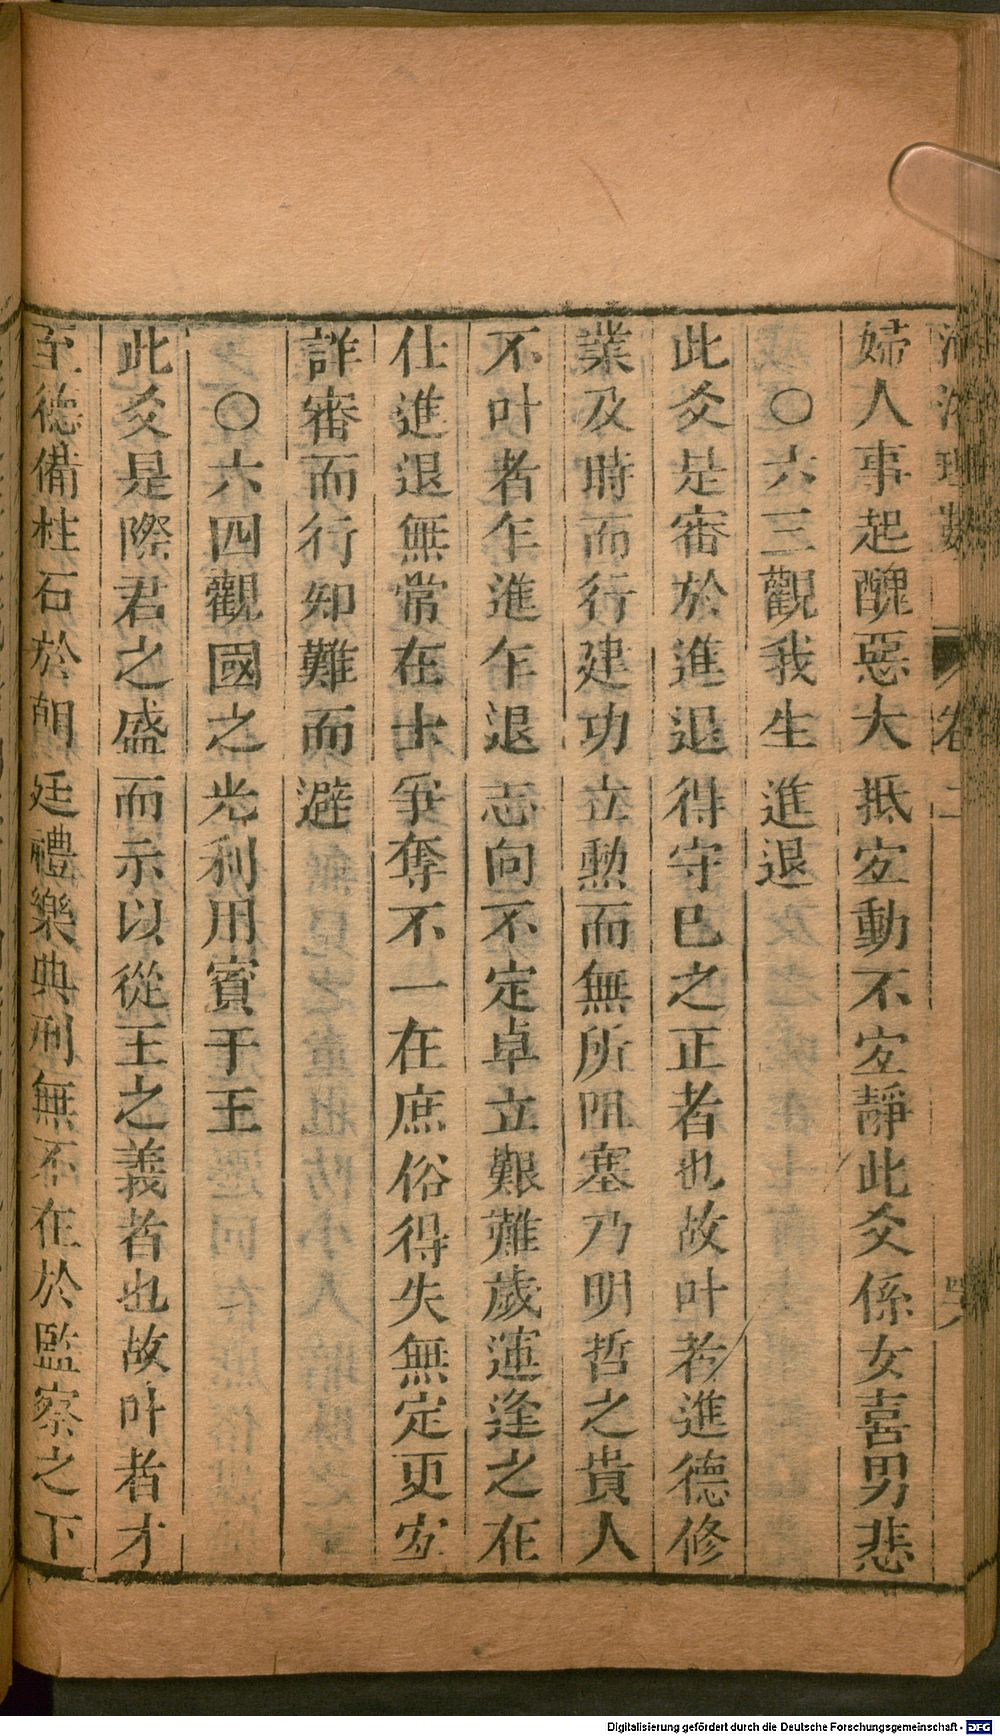 婦人事起醜惡大抵宐動不宐靜此爻係女喜男悲
○六三觀我生進退
此爻是審於進退得守已之正者也故叶者進德修
業及時而行建功立勲而無所阻塞乃明哲之貴人
不叶者乍進乍退志向不定卓立艱難歲運逢之在
仕進退無常在士爭奪不一在庶俗得失無定更宐
詳審而行知難而避
○六四觀國之光利用賓于王
此爻是際君之盛而示以從王之義者也故叶者才
至德備柱石於朝廷禮樂典刑無不在於監察之下
卷二
Digitalisierung gefördert durch die Deutsche Forschungsgemeinschaft - DFG